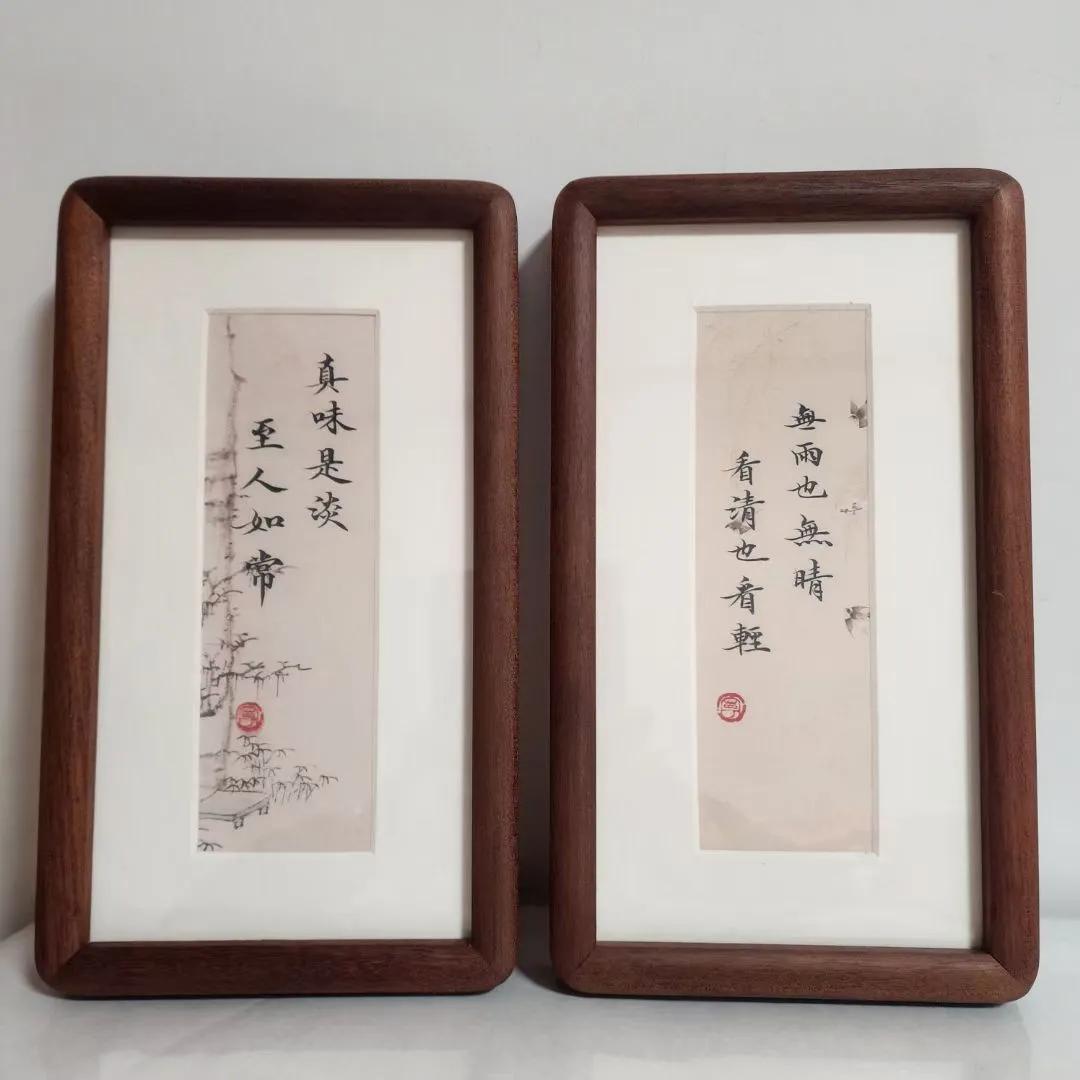 真味是淡
至人如常
無雨也無晴
看清也看輕